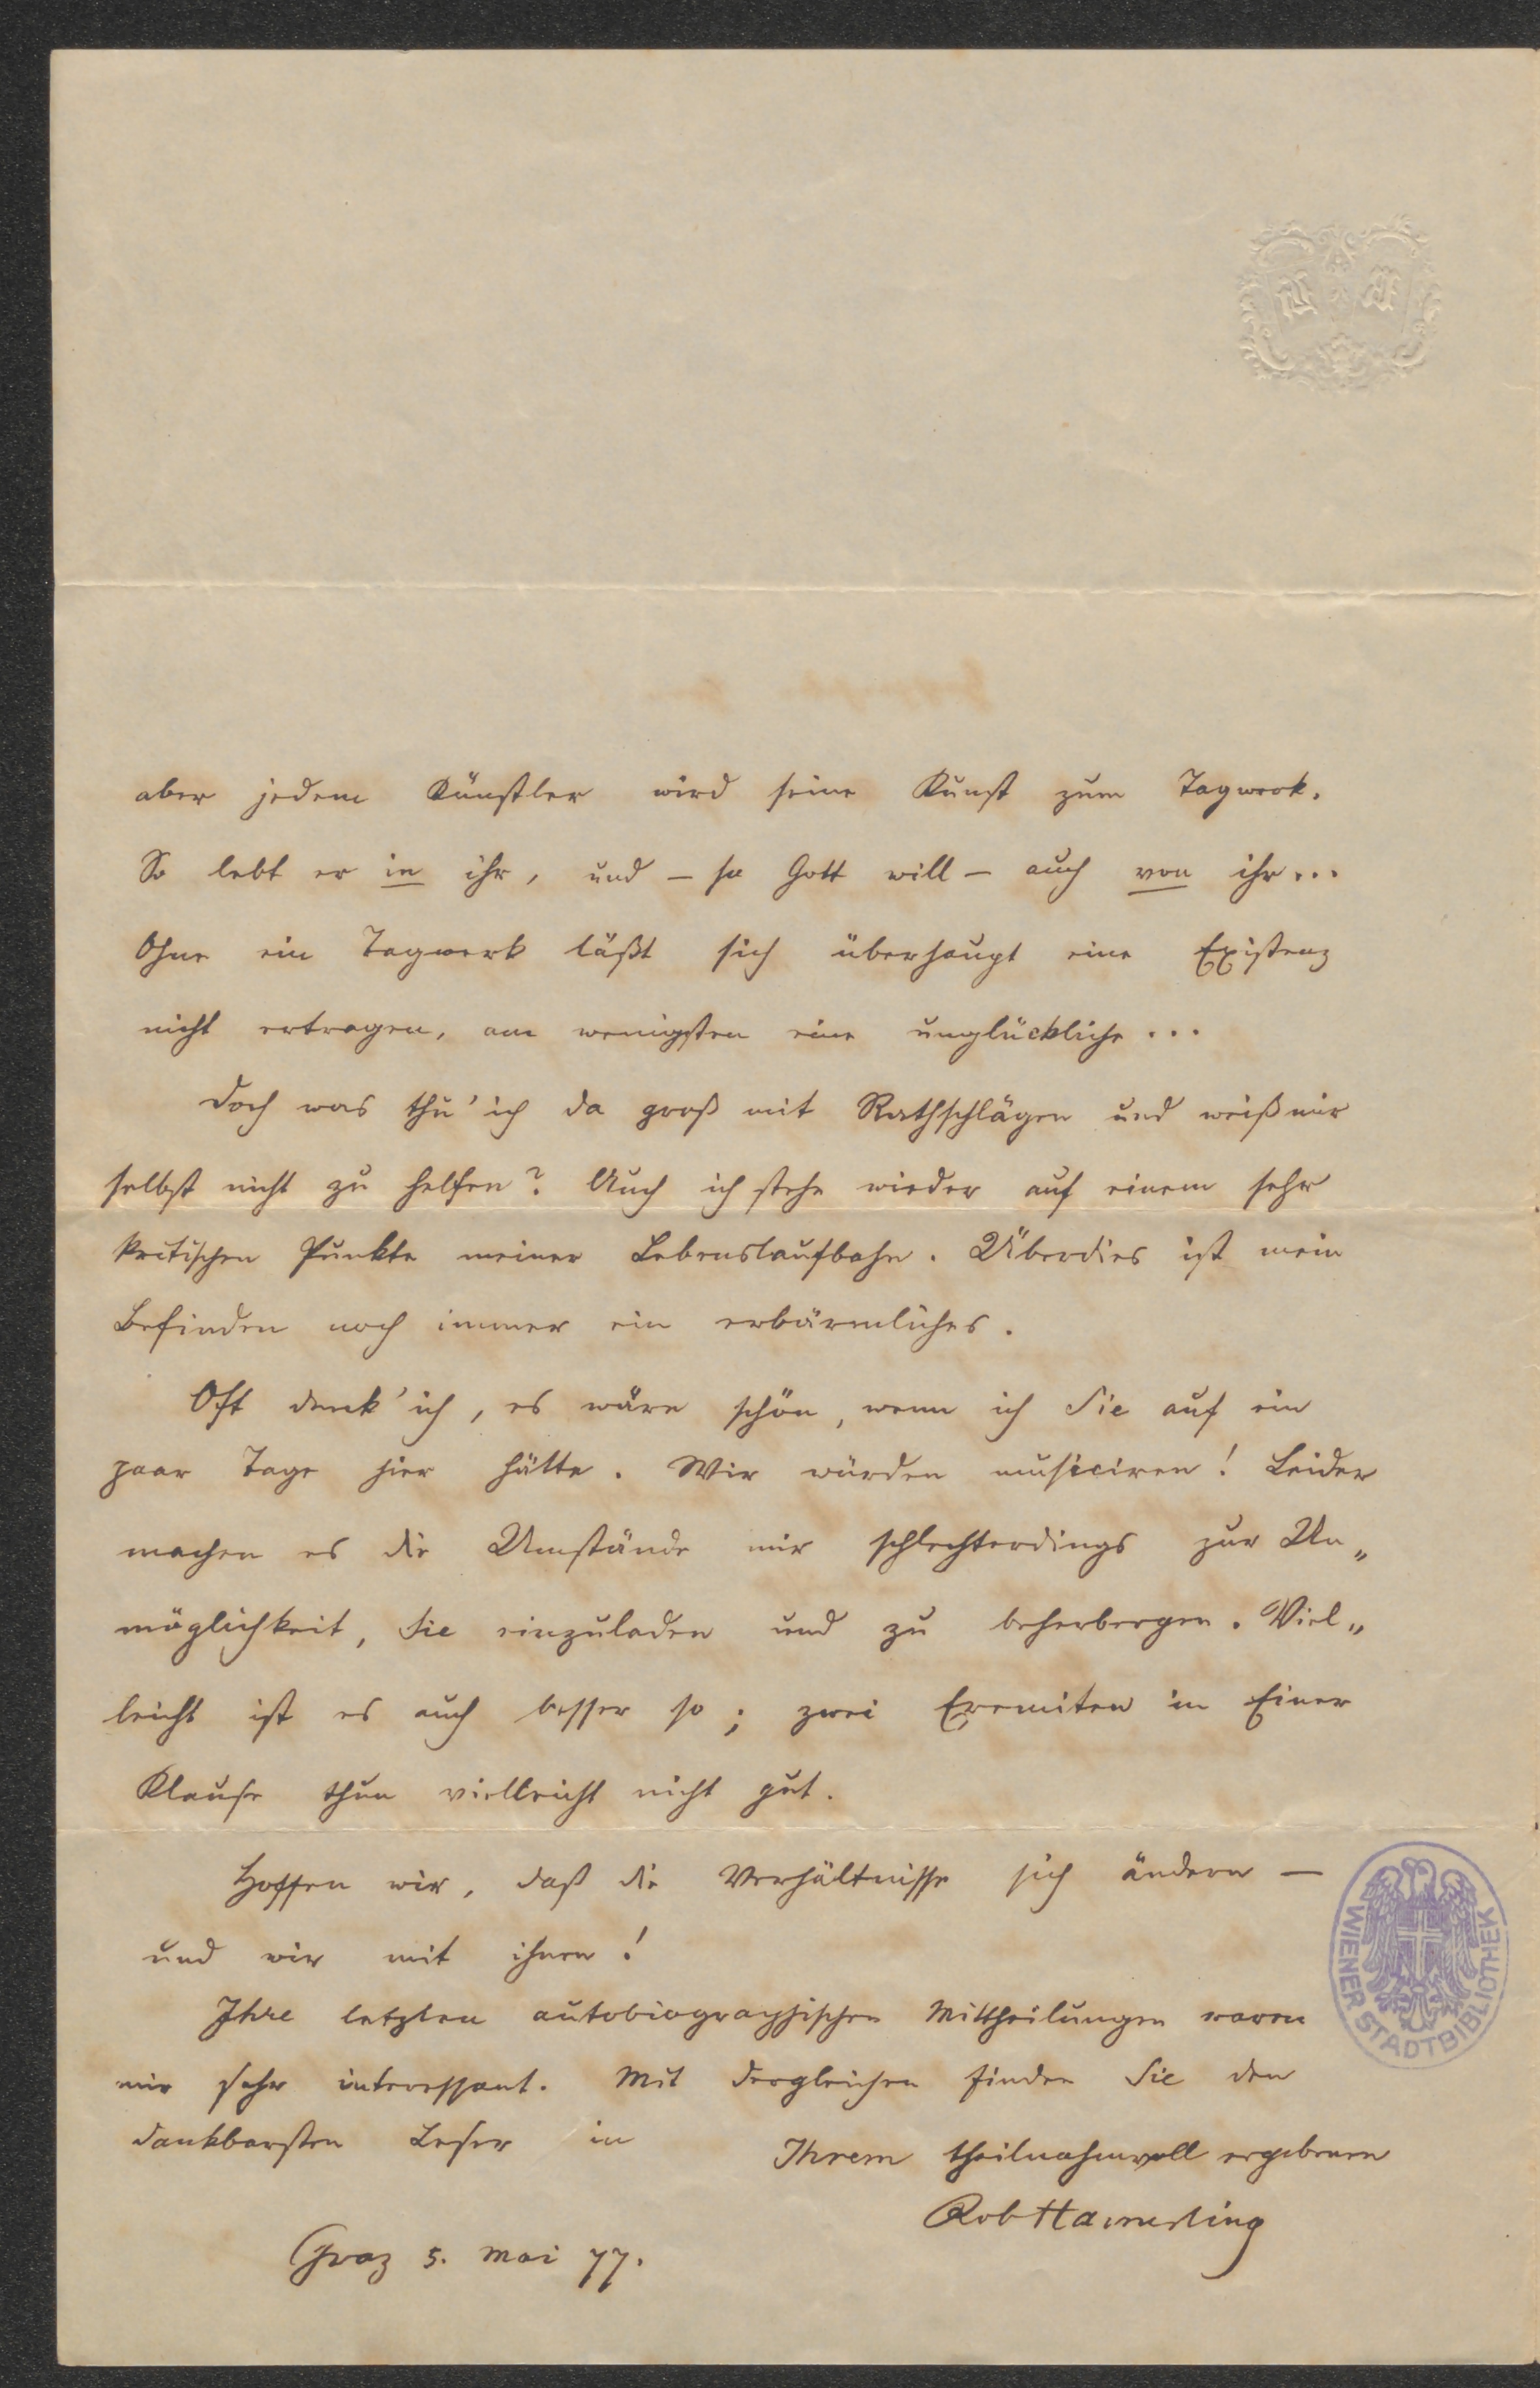 aber jedem Künstler wird seine Kunst zum Tagwerk.
So lebt er in ihr, und – so Gott will – auch von ihr...
Ohne ein Tagwerk läßt sich überhaupt eine Existenz
nicht ertragen, am wenigsten eine unglückliche...
Doch was thu' ich da groß mit Rathschlägen und weiß mir
selbst nicht zu helfen? Auch ich stehe wieder auf einem sehr
kritischen Punkte meiner Lebenslaufbahn. Überdies ist mein
Befinden noch immer ein erbärmliches.
Oft denk' ich, es wäre schön, wenn ich Sie auf ein
paar Tage hier hätte. Wir würden musiciren! Leider
machen es die Umstände mir schlechterdings zur Un„
möglichkeit, Sie einzuladen und zu beherbergen. Viel„
leicht ist es auch besser so; zwei Eremiten in Einer
Klause thun vielleicht nicht gut.
Hoffen wir, daß die Verhältnisse sich ändern —
und wir mit ihnen!
Ihre letzten autobiographischen Mittheilungen waren
mir sehr interessant. Mit dergleichen finden Sie den
dankbarsten Leser in
Ihrem theilnahmvoll ergebenen
Rob Hamerling
Graz 5. Mai 77.
WIENER STADTBIBLIOTHEK